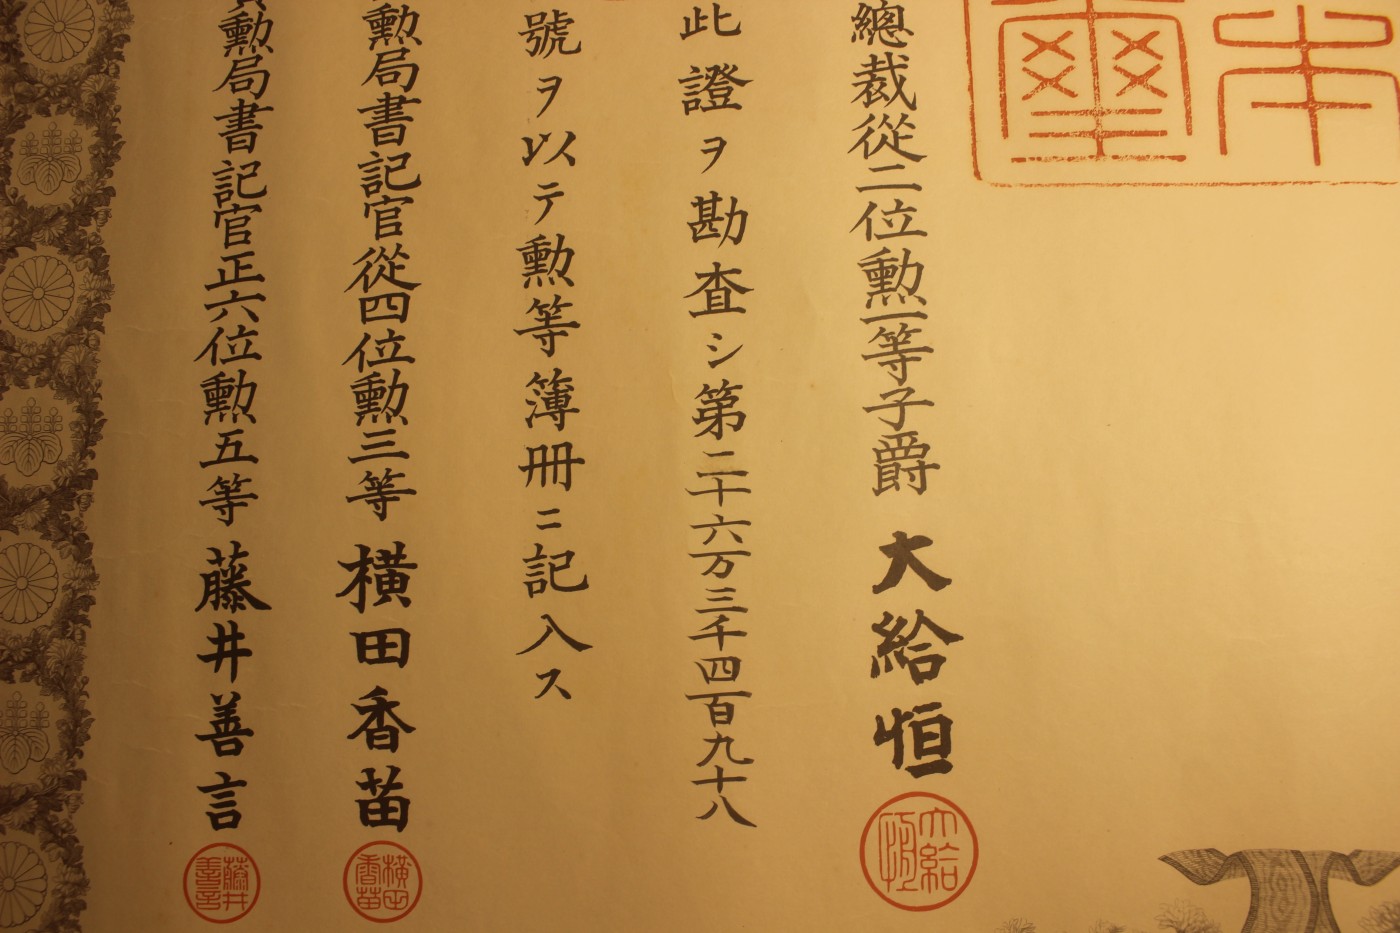 本
璽
總裁從二位勲一等子爵 大給恒
大給恒
此證ヲ勘査シ第二十六万三千四百九十八
號ヲ以テ勲等簿冊ニ記入ス
勲局書記官從四位勲三等 横田香苗
横田香苗
勲局書記官正六位勲五等 藤井善言
藤井善言